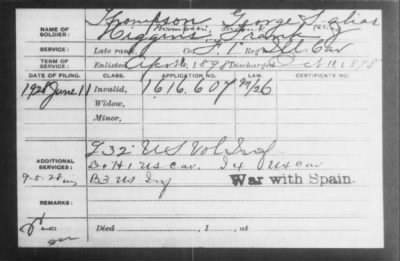 Thompson, George S. alias
NAME OF SOLDIER: Higgins, Frank
SERVICE: Late rank, Co. F, 1" Reg't Ill. Cav
TERM OF SERVICE: Enlisted Apr 26, 1898 Discharged Oct 11, 1898
DATE OF FILING. CLASS. APPLICATION NO. LAW. CERTIFICATE NO.
1928 June 11 Invalid, 1616.607
Widow,
Minor,
ADDITIONAL SERVICES: L 32" U S Vol Inf
D + H 1 US Cav. I 4 US Cav
9-5-28 B 3 US Inf War with Spain.
REMARKS:
Died , 1 , at